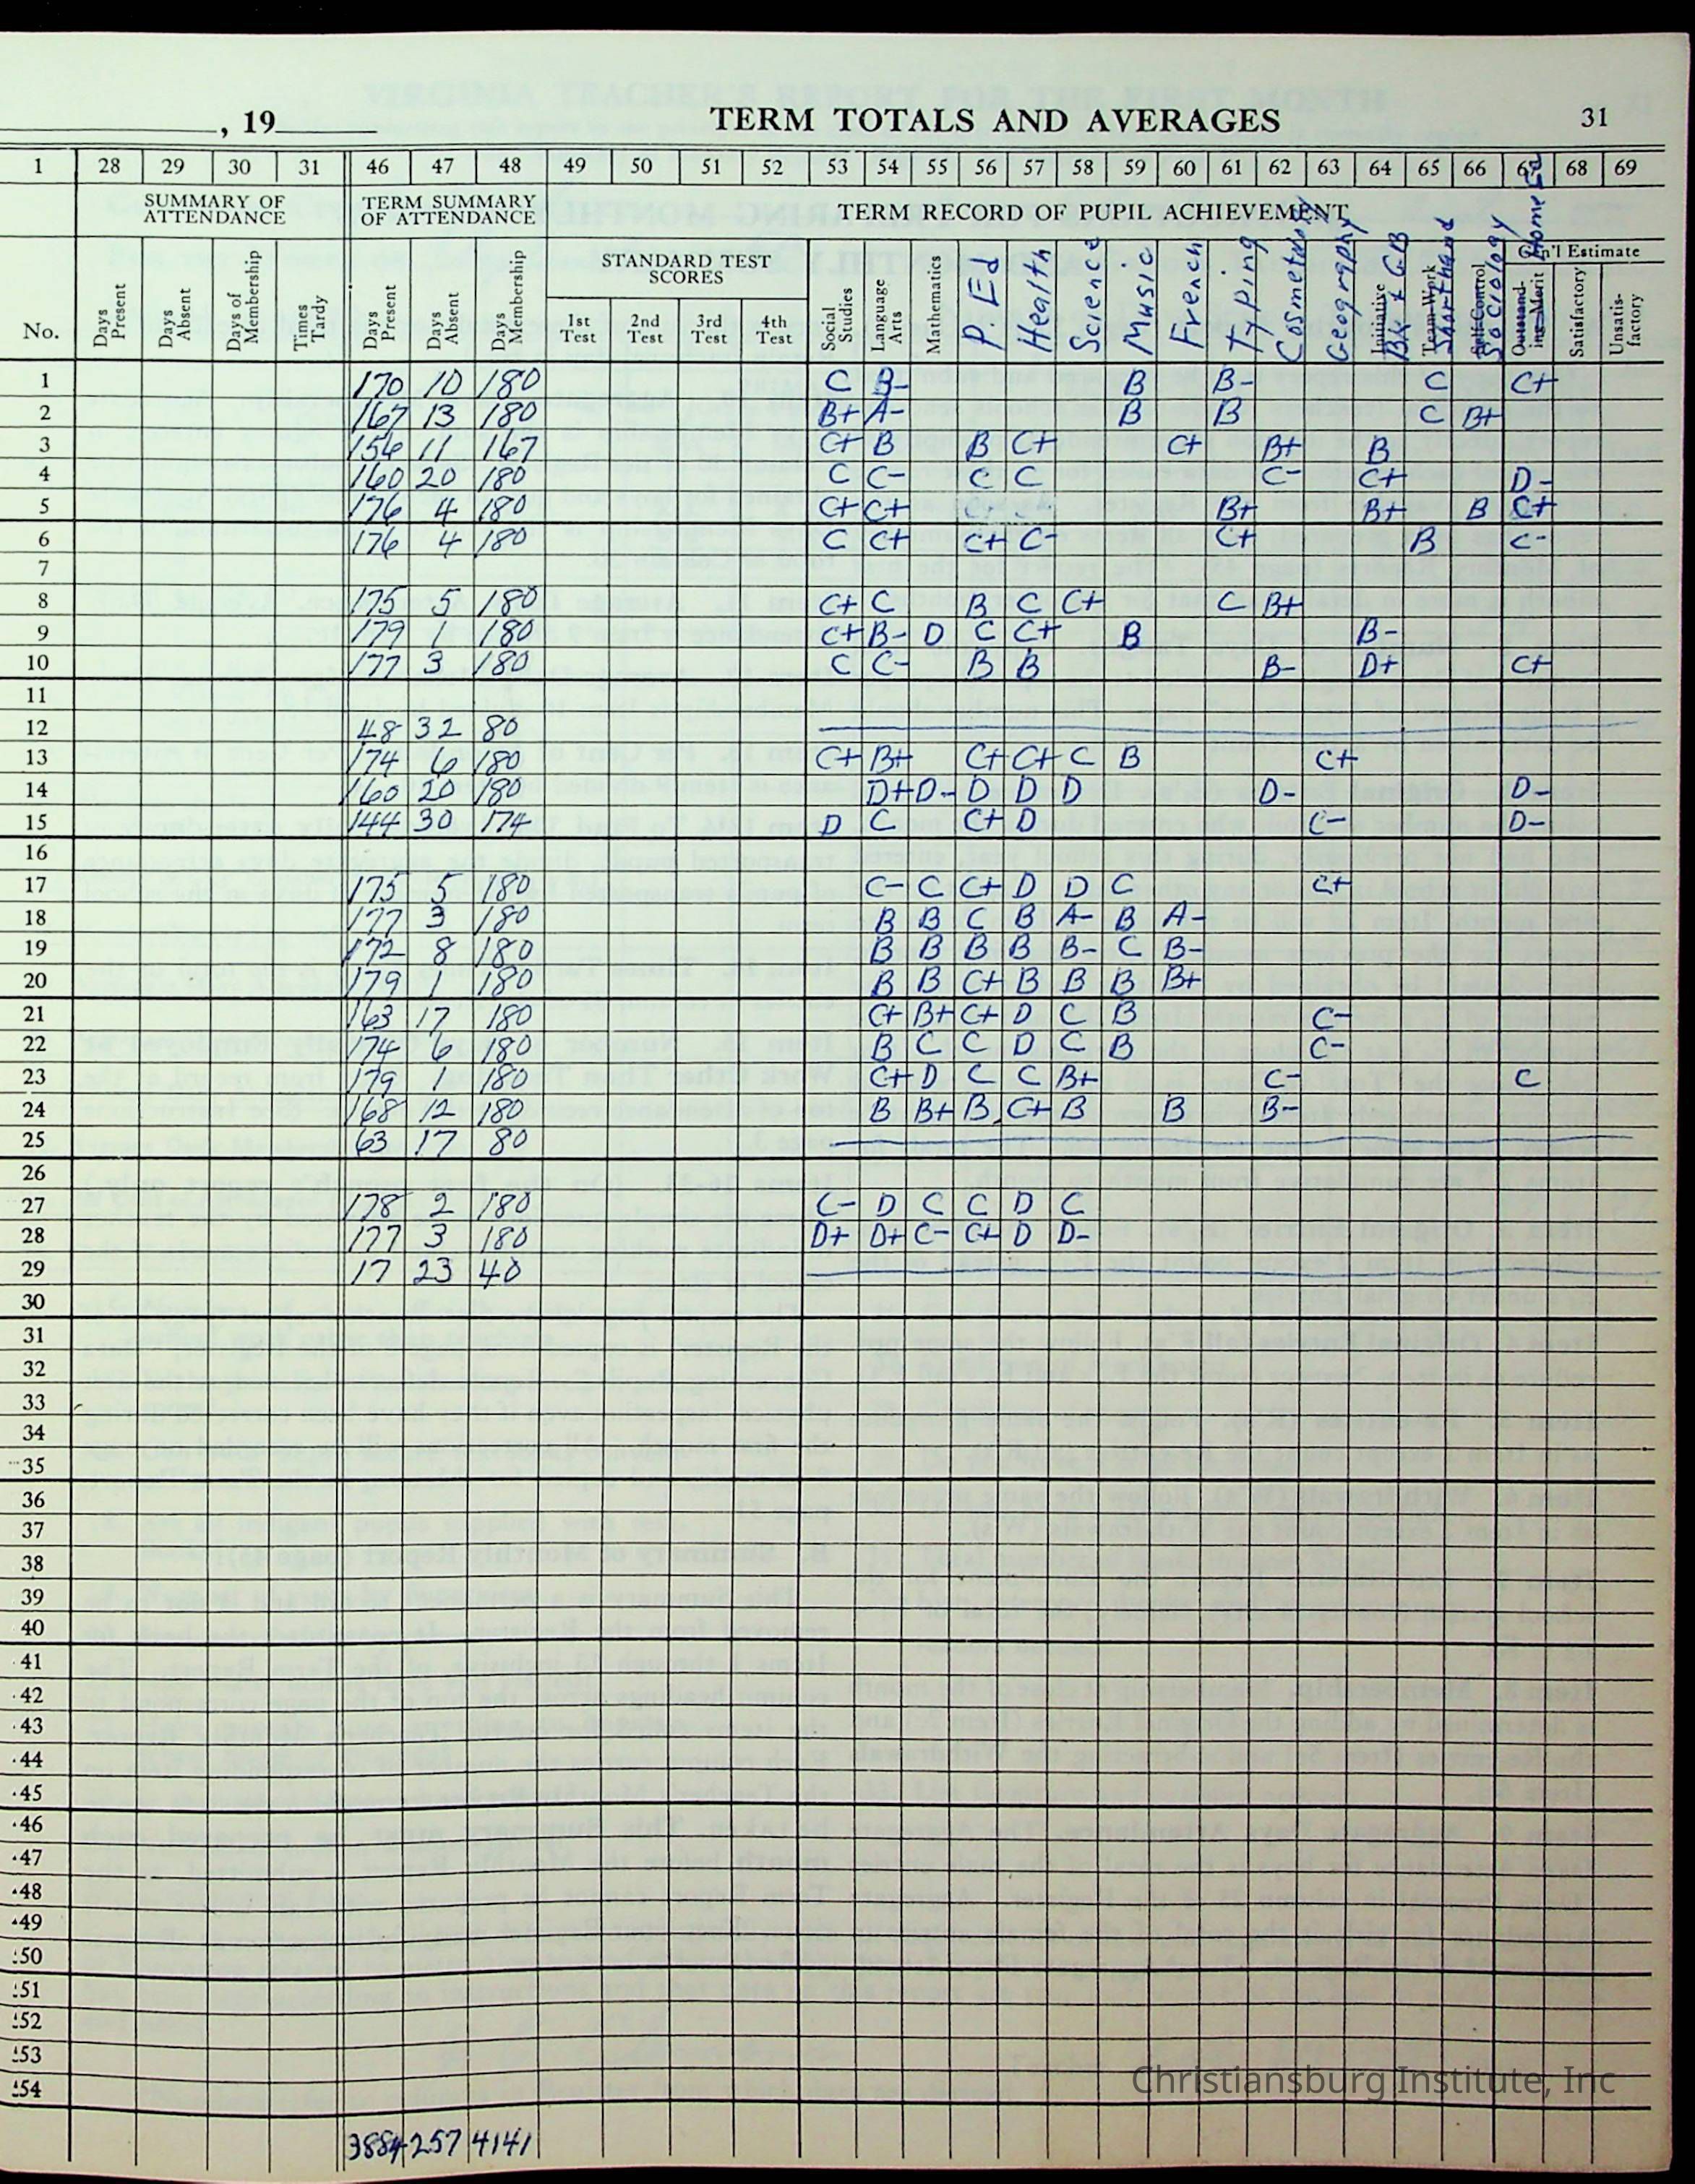 , 19 TERM TOTALS AND AVERAGES 31
1 28 29 30 31 46 47 48 49 50 51 52 53 54 55 56 57 58 59 60 61 62 63 64 65 66 67 68 69
SUMMARY OF ATTENDANCE TERM SUMMARY OF ATTENDANCE STANDARD TEST SCORES TERM RECORD OF PUPIL ACHIEVEMENT Gen'l Estimate
No. Days Present Days Absent Days of Membership Times Tardy Days Present Days Absent Days Membership 1st Test 2nd Test 3rd Test 4th Test Social Studies Language Arts Mathematics P Ed Health Science Music French Typing Cosmetology Geography Initiative BK & GB Team-Work Shorthand Self-Control Sociology Outstanding Merit Home Ed Satisfactory Unsatisfactory
1 170 10 180 C B- B B- C C+
2 167 13 180 B+ A- B B C B+
3 156 11 167 C+ B B C+ C+ B+ B
4 160 20 180 C C- C C C- C+ D-
5 176 4 180 C+ C+ C C B+ B+ B C+
6 176 4 180 C C+ C+ C- C+ B C-
7
8 175 5 180 C+ C B C C+ C B+
9 179 1 180 C+ B- D C C+ B B-
10 177 3 180 C C- B B B- D+ C+
11
12 48 32 80
13 174 6 180 C+ B+ C+ C+ C B C+
14 160 20 180 D+ D- D D D D- D-
15 144 30 174 D C C+ D C- D-
16
17 175 5 180 C- C C+ D D C C+
18 177 3 180 B B C B A- B A-
19 172 8 180 B B B B B- C B-
20 179 1 180 B B C+ B B B B+
21 163 17 180 C+ B+ C+ D C B C-
22 174 6 180 B C C D C B C-
23 179 1 180 C+ D C C B+ C- C
24 168 12 180 B B+ B C+ B B B-
25 63 17 80
26
27 178 2 180 C- D C C D C
28 177 3 180 D+ D+ C- C+ D D-
29 17 23 40
30
31
32
33
34
35
36
37
38
39
40
41
42
43
44
45
46
47
48
49
50
51
52
53
54
3884 257 4141
Christiansburg Institute, Inc